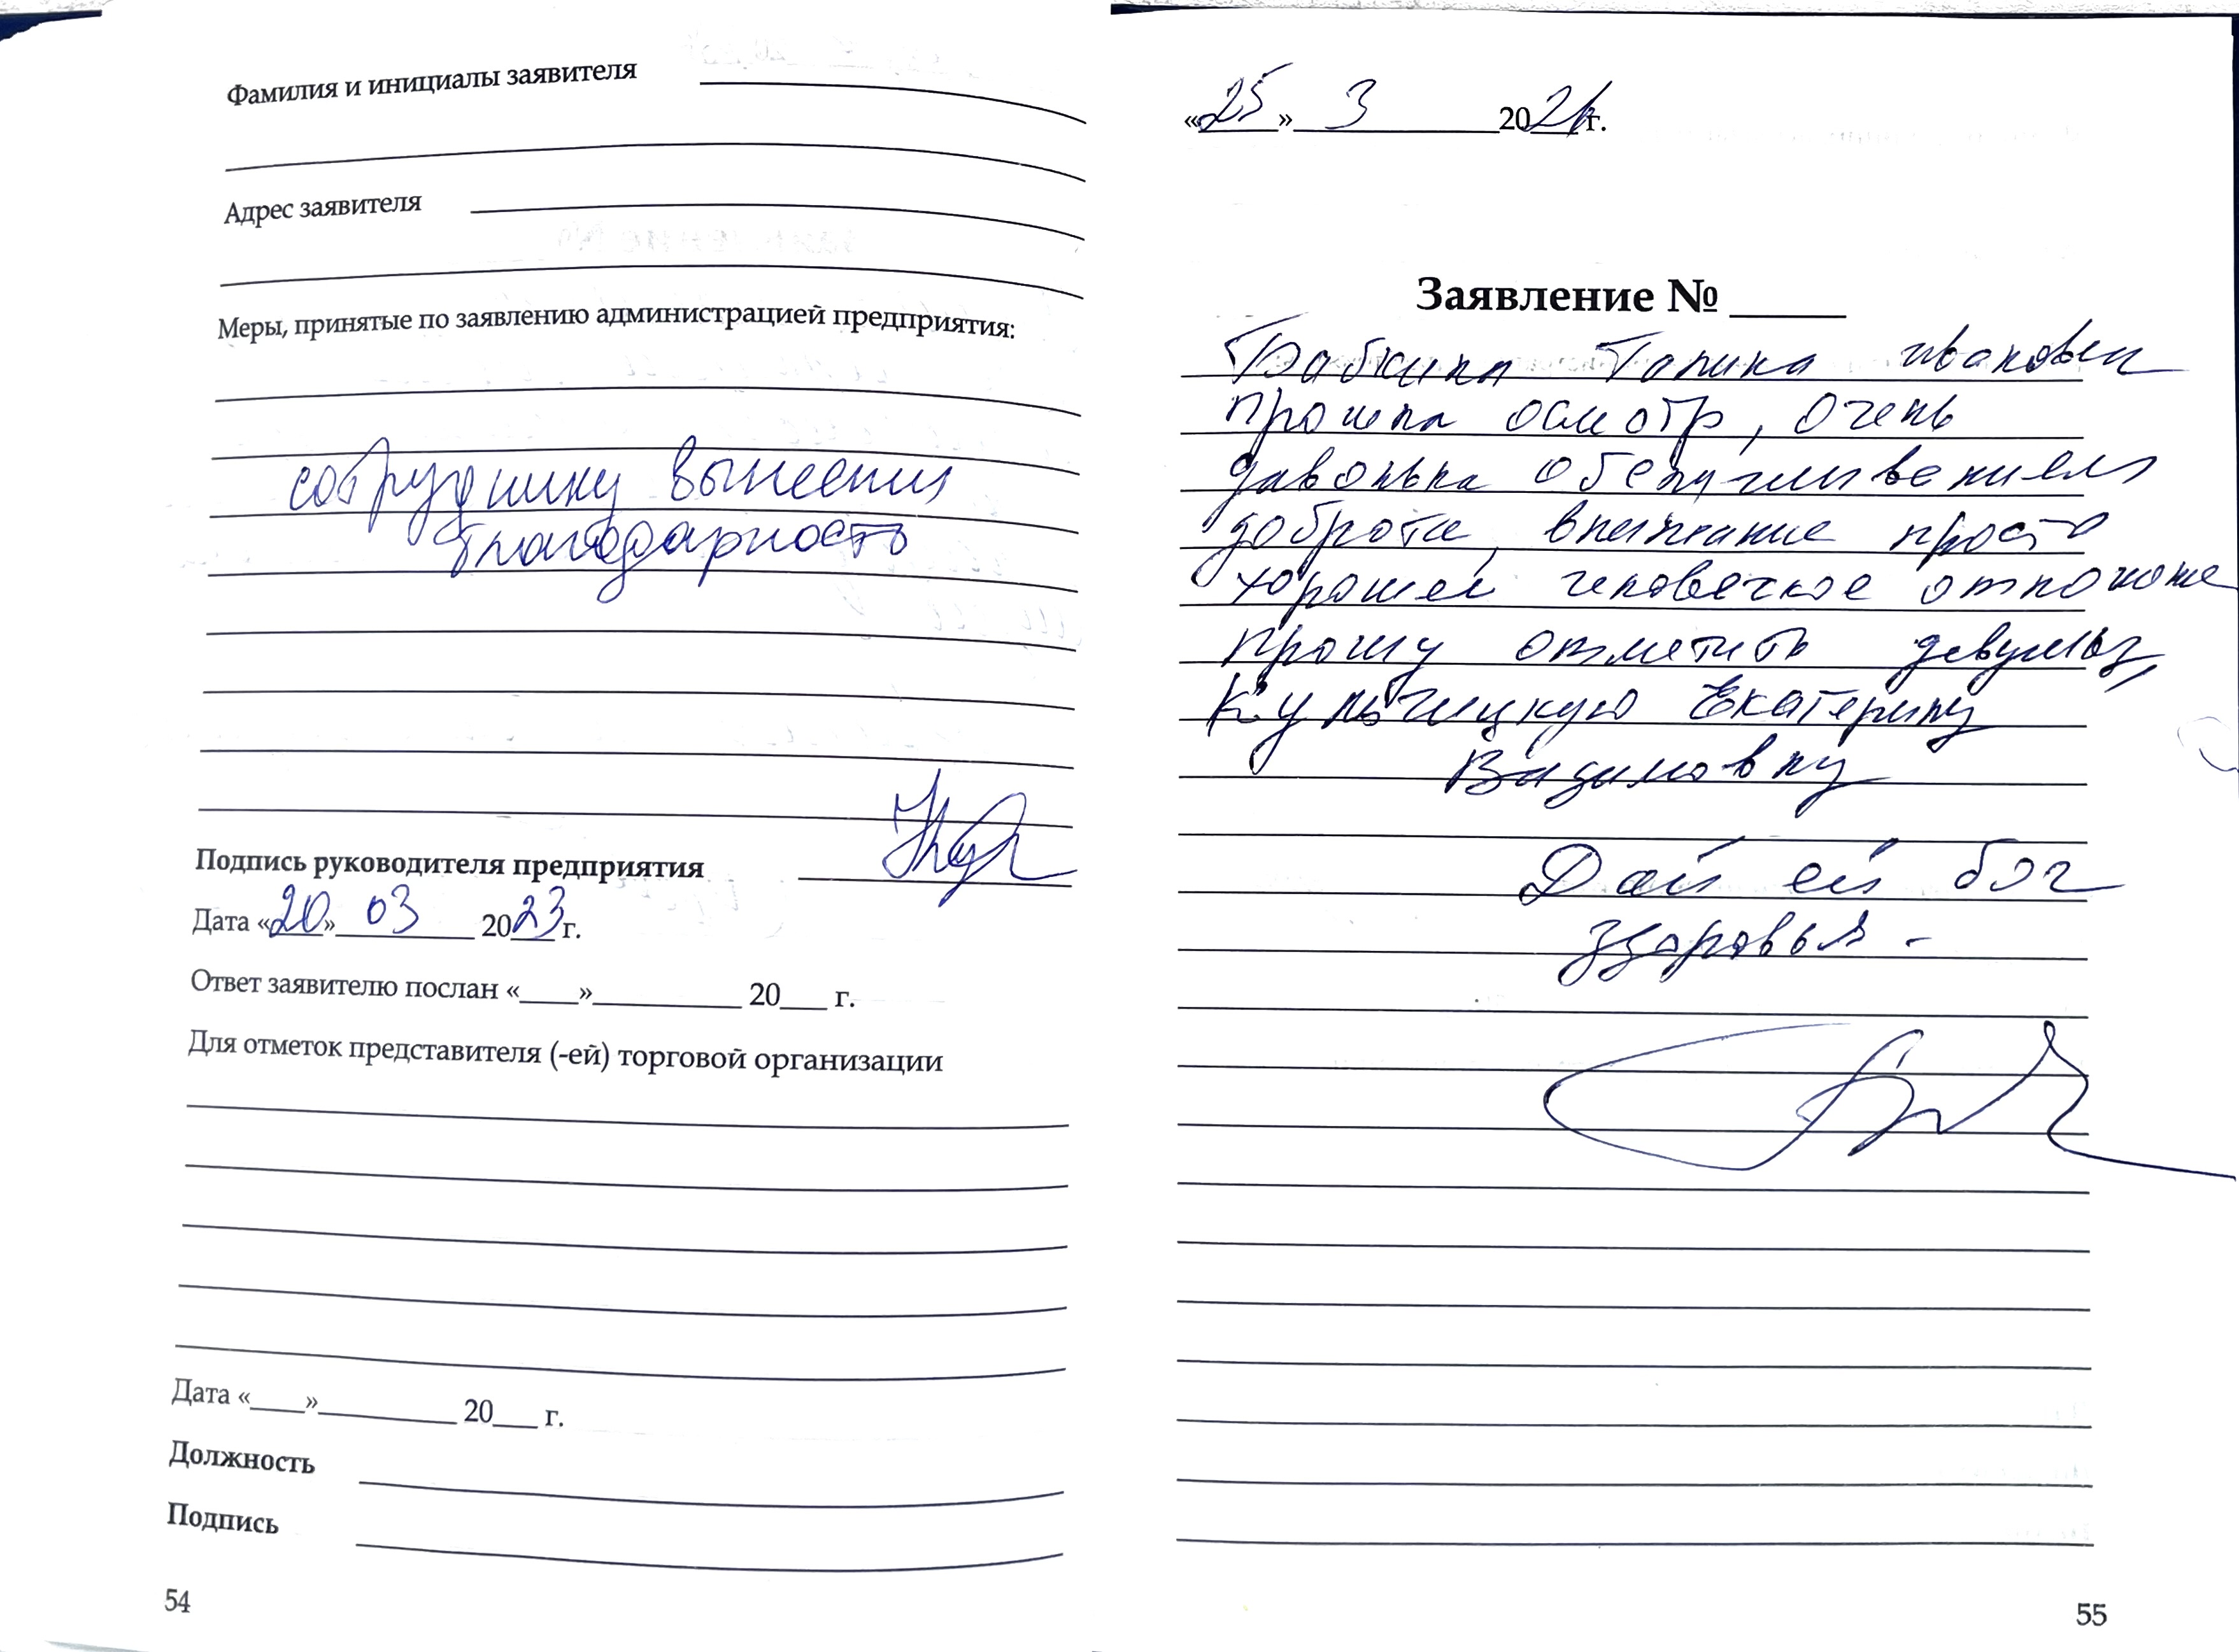 Фамилия и инициалы заявителя
Адрес заявителя
Меры, принятые по заявлению администрацией предприятия:
сотруднику вынесена
благодарность
Подпись руководителя предприятия
Дата «20» 03 2023 г.
Ответ заявителю послан «____»__________ 20___ г.
Для отметок представителя (-ей) торговой организации
Дата «____»__________ 20___ г.
Должность
Подпись
54
«25» 3 20 г.
Заявление № ____
Бабкина Галина ивановн
прошла осмотр, очень
давольна
доброта, внимание просто
хорошей человечкое отноше
прошу отметить девушку,
Кульчицкую Екатерину
Вадимовну
Дай ей бог
здоровья -
55